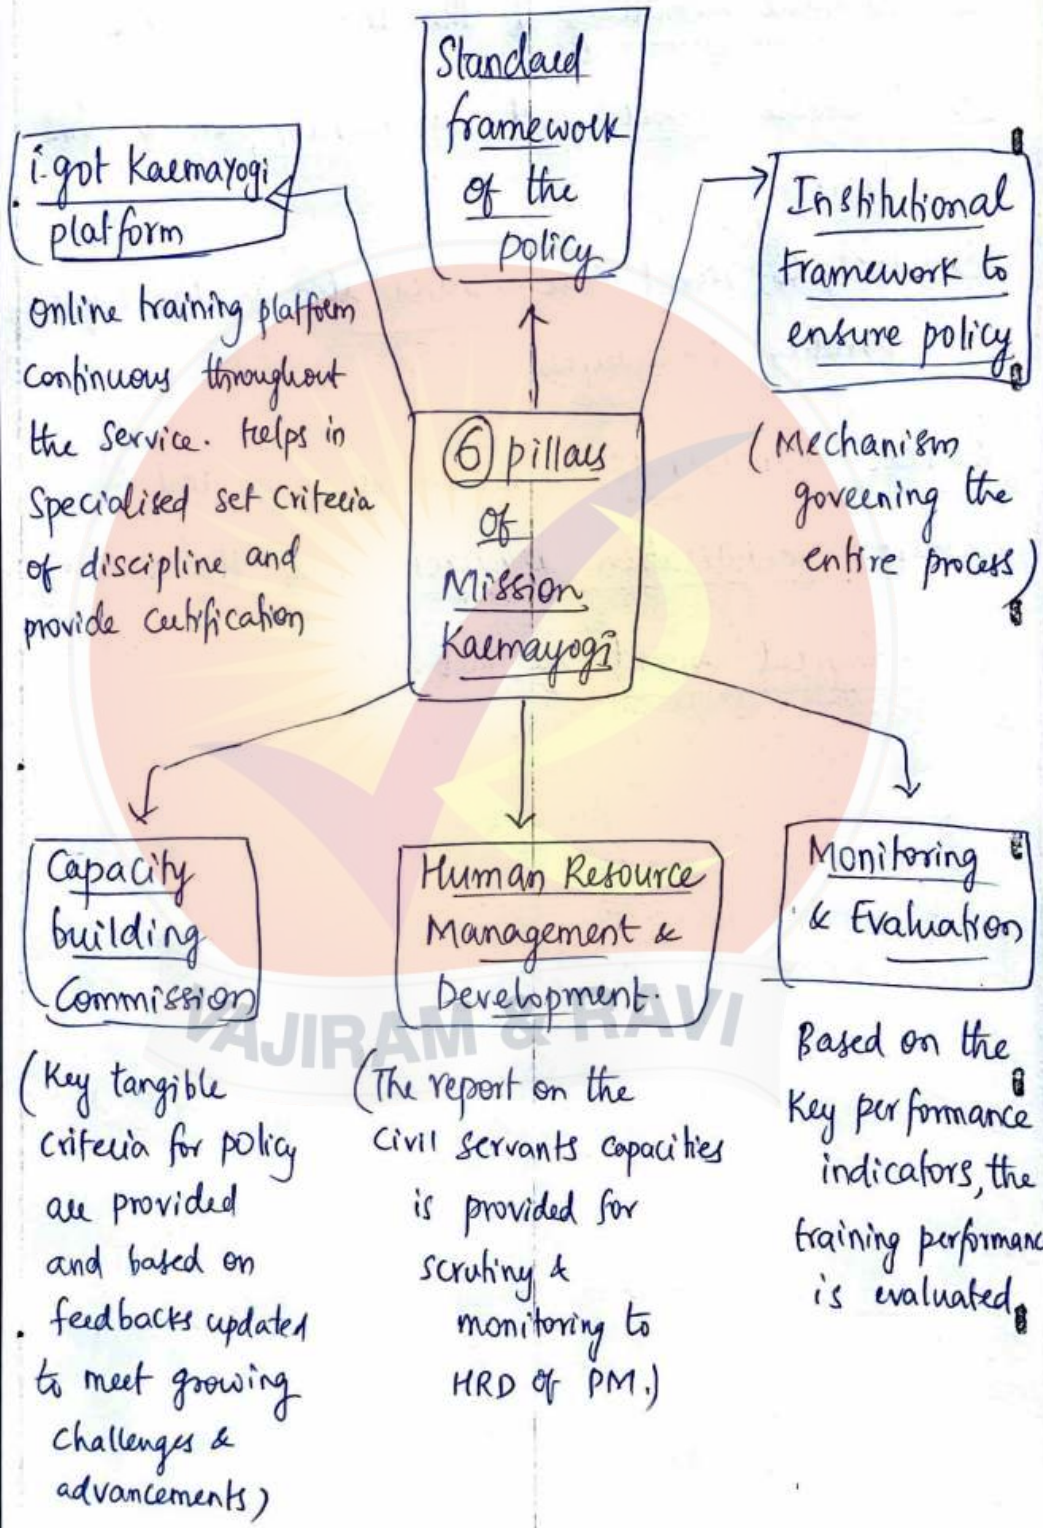 Standard
framework
of the
policy
i-got Karmayogi
platform
Online training platform
continuous throughout
the service. Helps in
specialised set criteria
of discipline and
provide certification
Institutional
Framework to
ensure policy
(Mechanism
governing the
entire process)
6 pillars
of
Mission
Karmayogi
Capacity
building
Commission
(Key tangible
criteria for policy
are provided
and based on
feedbacks updated
to meet growing
challenges &
advancements)
Human Resource
Management &
Development.
(The report on the
civil servants capacities
is provided for
scrutiny &
monitoring to
HRD of PM.)
Monitoring
& Evaluation
Based on the
key performance
indicators, the
training performanc
is evaluated.
VAJIRAM & RAVI